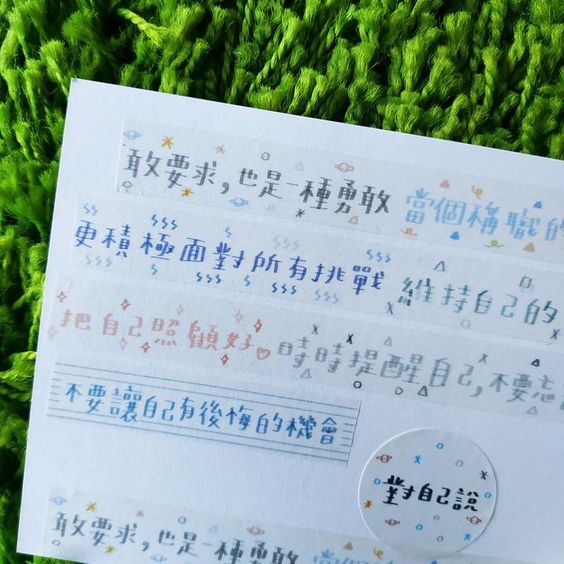 敢要求,也是一種勇敢 當個稱職的
更積極面對所有挑戰 維持自己的
把自己照顧好 時時提醒自己,不要忘
不要讓自己有後悔的機會
對自己說
敢要求,也是一種勇敢 當個